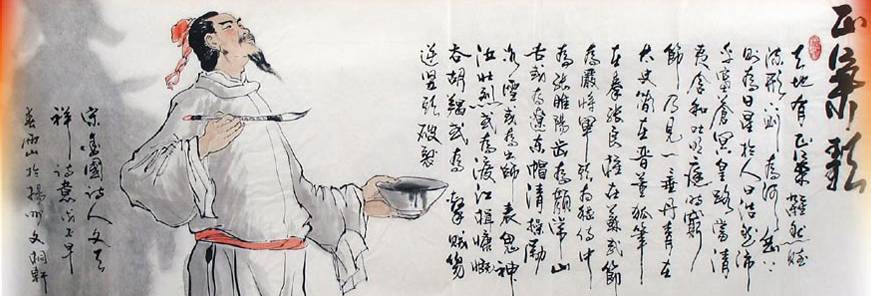 正氣歌
天地有正氣雜然賦
流形下則為河嶽上
則為日星於人曰浩然沛
乎塞蒼冥皇路當清
夷含和吐明庭時窮
節乃見一一垂丹青在
太史簡在晉董狐筆
在秦張良椎在蘇武節
為嚴將軍頭為嵇侍中
為張睢陽齒為顏常山
舌或為遼東帽清操厲
冰雪或為出師表鬼神
泣壯烈或為渡江楫慷慨
吞胡羯或為擊賊笏
逆豎頭破裂
宋愛國詩人文天
祥詩意
山於揚州文桐軒